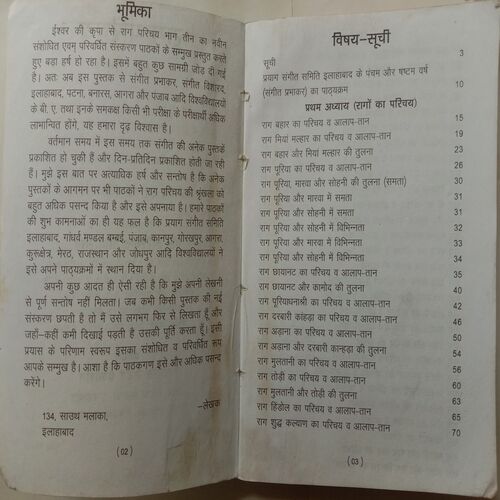 भूमिका
ईश्वर की कृपा से राग परिचय भाग तीन का नवीन
संशोधित एवम् परिवर्धित संस्करण पाठकों के सम्मुख प्रस्तुत करते
हुए बडा हर्ष हो रहा है। इसमें बहुत कुछ सामग्री जोड दी गई
है। अतः अब इस पुस्तक से संगीत प्रभाकर, संगीत विशारद,
इलाहाबाद, पटना, बनारस, आगरा और पंजाब आदि विश्वविद्यालयों
के बी. ए. तथा इनके समकक्ष किसी भी परीक्षा के परीक्षार्थी अधिक
लाभान्वित होंगे, यह हमारा दृढ विश्वास है।
वर्तमान समय में इस समय तक संगीत की अनेक पुस्तकें
प्रकाशित हो चुकी हैं और दिन-प्रतिदिन प्रकाशित होती जा रही
है। मुझे इस बात पर अत्याधिक हर्ष और सन्तोष है कि अनेक
पुस्तकों के आगमन पर भी पाठकों ने राग परिचय की श्रृंखला को
बहुत अधिक पसन्द किया है और इसे अपनाया है। हमारे पाठकों
की शुभ कामनाओं का ही यह फल है कि प्रयाग संगीत समिति
इलाहाबाद, गांधर्व मण्डल बम्बई, पंजाब, कानपुर, गोरखपुर, आगरा,
कुरूक्षेत्र, मेरठ, राजस्थान और जोधपुर आदि विश्वविद्यालयों ने
इसे अपने पाठ्यक्रमों में स्थान दिया है।
अपनी कुछ आदत ही ऐसी रही है कि मुझे अपनी लेखनी
से पूर्ण सन्तोष नहीं मिलता। जब कभी किसी पुस्तक की नई
संस्करण छपती है तो मैं उसे लगभग फिर से लिखता हूँ और
जहाँ-कहीं कमी दिखाई पड़ती है उसकी पूर्ति करता हूँ। इसी
प्रयास के परिणाम स्वरूप इसका संशोधित व परिवर्धित रूप
आपके सम्मुख है। आशा है कि पाठकगण इसे और अधिक पसन्द
करेंगे।
–लेखक
134, साउथ मलाका,
इलाहाबाद
(02)
विषय-सूची
सूची 3
प्रयाग संगीत समिति इलाहाबाद के पंचम और षष्टम वर्ष
(संगीत प्रभाकर) का पाठ्यक्रम 10
प्रथम अध्याय (रागों का परिचय)
राग बहार का परिचय व आलाप-तान 15
राग मियां मल्हार का परिचय व आलाप-तान 19
राग बहार और मियां मल्हार की तुलना 23
राग पूरिया का परिचय व आलाप-तान 26
राग पूरिया, मारवा और सोहनी की तुलना (समता) 30
राग पूरिया और मारवा में समता 31
राग पूरिया और सोहनी में समता 31
राग पूरिया और मारवा में विभिन्नता 32
राग पूरिया और मारवा में विभिन्नता 33
राग पूरिया और सोहनी में विभिन्नता 34
राग छायानट का परिचय व आलाप-तान 35
राग छायानट और कामोद की तुलना 40
राग पूरियाधनाश्री का परिचय व आलाप-तान 42
राग दरबारी कांहडा का परिचय व आलाप-तान 46
राग अडाना का परिचय व आलाप-तान 50
राग अडाना और दरबारी कान्हडा की तुलना 54
राग मुलतानी का परिचय व आलाप-तान 56
राग तोड़ी का परिचय व आलाप-तान 60
राग मुलतानी और तोड़ी की तुलना 63
राग हिंडोल का परिचय व आलाप-तान 65
राग शुद्ध कल्याण का परिचय व आलाप-तान 70
(03)